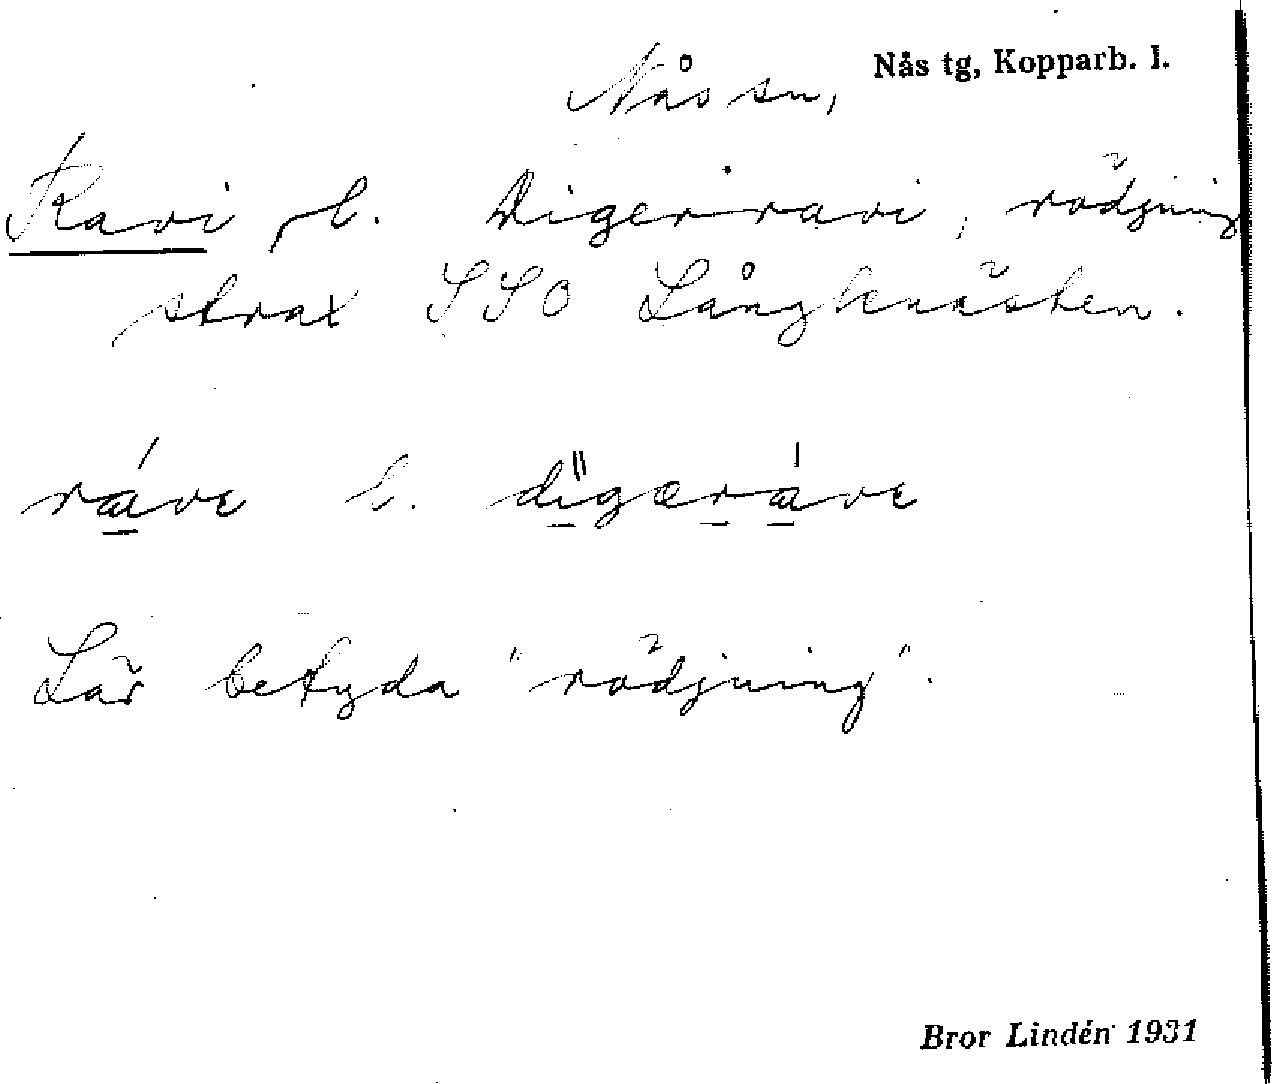 Nås tg, Kopparb. l.
Nås sn,
Ravi, l. Digerravi, rödjning
strax SSO Långknästen.
ráve l. digeráve
Lär betyda "rödjning".
Bror Lindén 1931